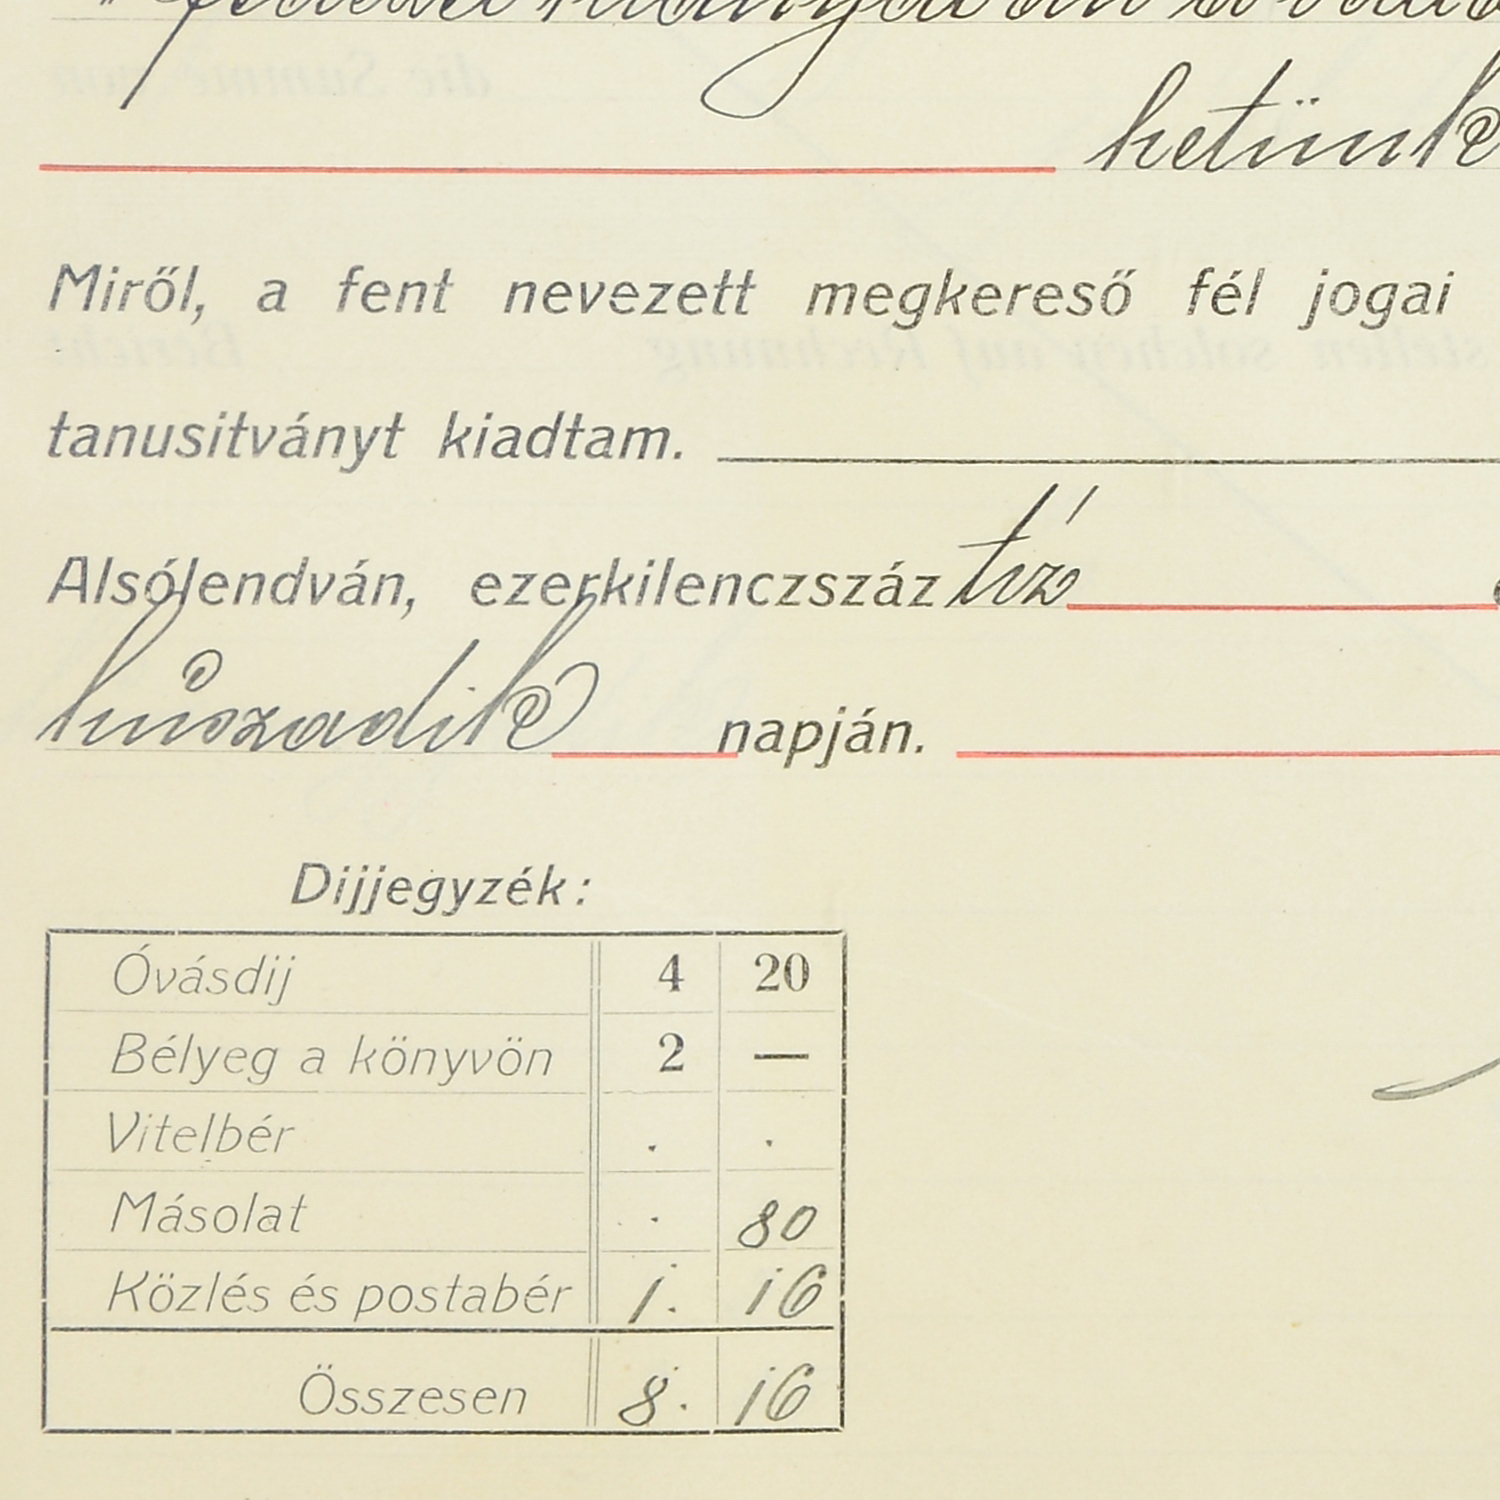 fedezet hiányában
hetünk
Miről, a fent nevezett megkereső fél jogai
tanusitványt kiadtam.
Alsólendván, ezerkilenczszáz tíz
húszadik napján.
Dijjegyzék:
Óvásdij 4 20
Bélyeg a könyvön 2 —
Vitelbér . .
Másolat . 80
Közlés és postabér 1. 16
Összesen 8. 16